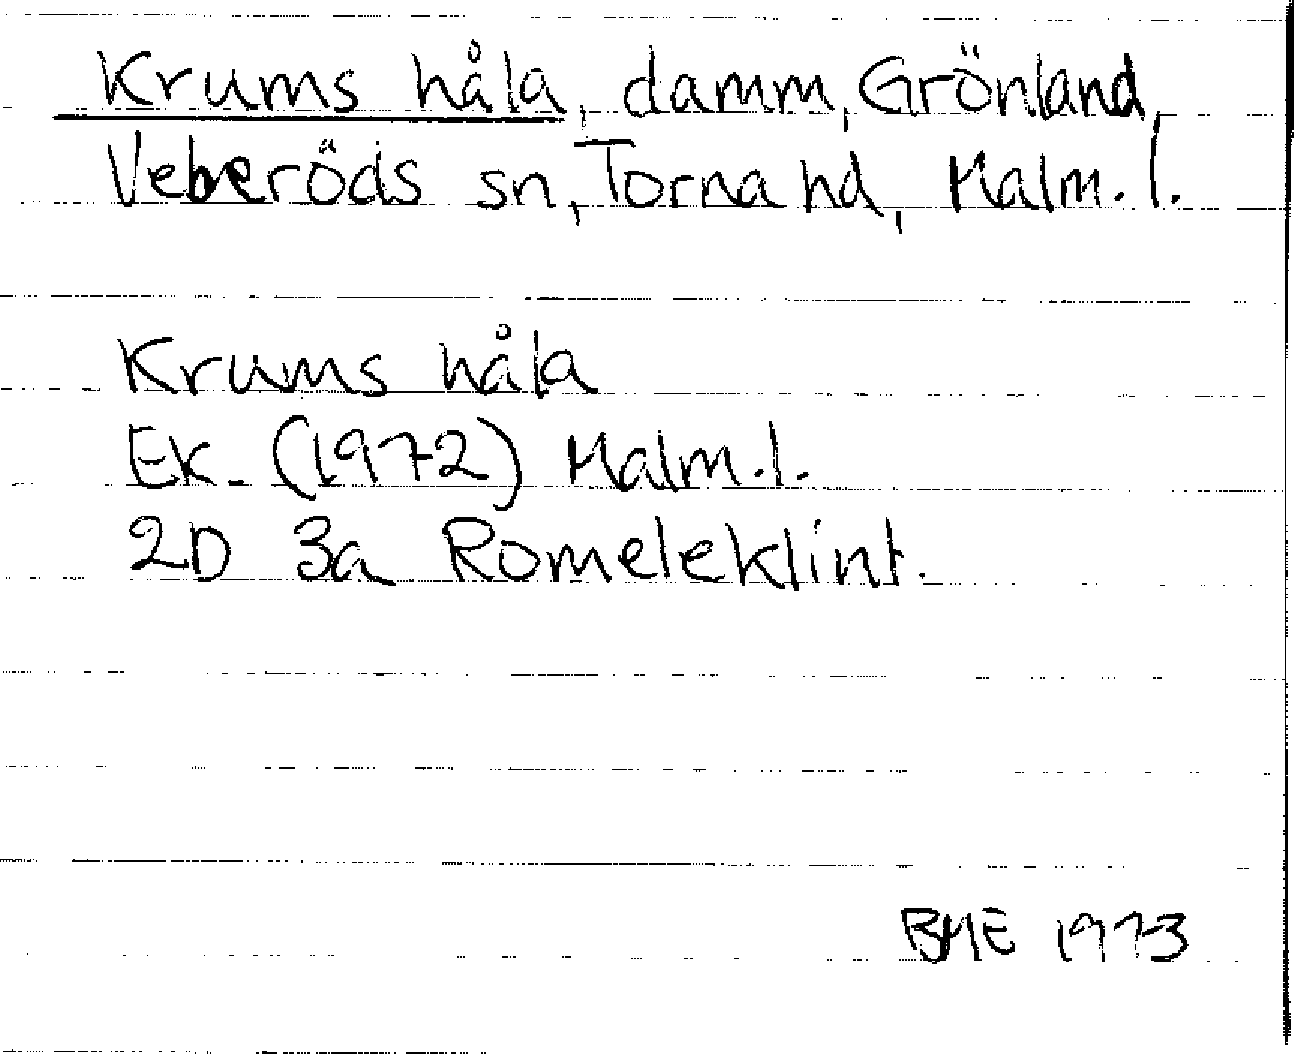 Krums håla, damm, Grönland,
Veberöds sn, Torna hd, Malm. l.
Krums håla
Ek. (1972) Malm. l.
2D 3a Romeleklint.
BME 1973